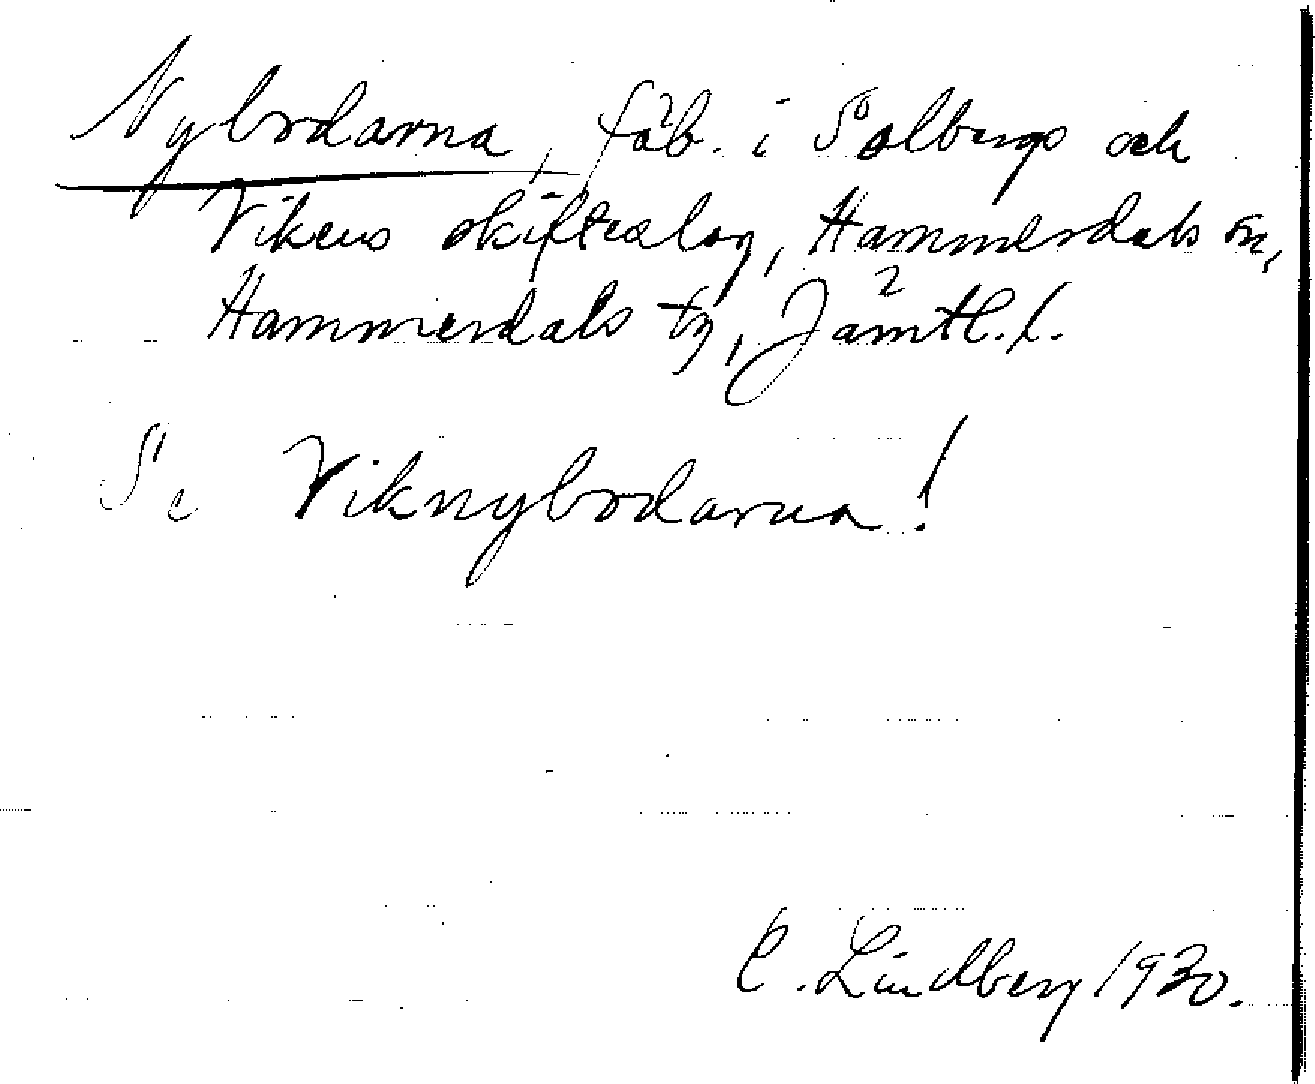 Nybodarna, fäb. i Solbergs och
Vikens skifteslag, Hammerdals sn,
Hammerdals tg, Jämtl. l.
Se Viknybodarna!
C. Lindberg 1930.